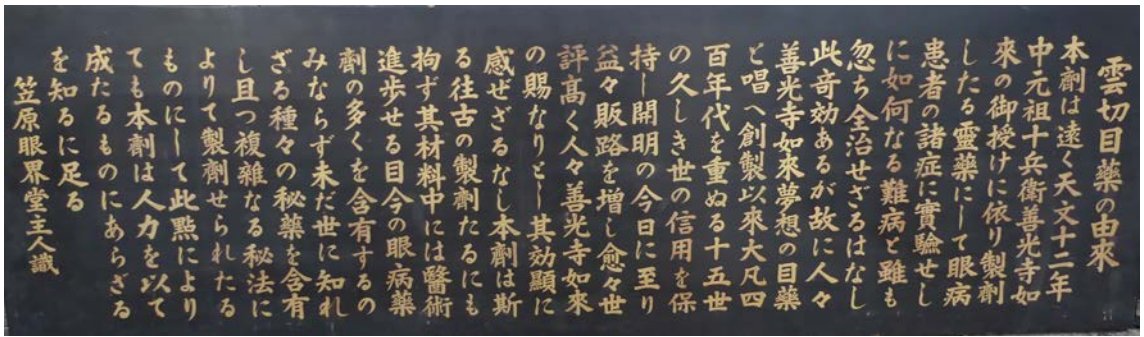 雲切目藥の由來
本劑は遠く天文十二年
中元祖十兵衛善光寺如
來の御授けに依り製劑
したる靈藥にして眼病
患者の諸症に實驗せし
に如何なる難病と雖も
忽ち全治せざるはなし
此奇効あるが故に人々
善光寺如來夢想の目藥
と唱へ創製以來大凡四
百年代を重ぬる十五世
の久しき世の信用を保
持し開明の今日に至り
益々販路を増し愈々世
評高く人々善光寺如來
の賜なりとし其効顯に
感ぜざるなし本劑は斯
る往古の製劑たるにも
拘ず其材料中には醫術
進歩せる目今の眼病藥
劑の多くを含有するの
みならず未だ世に知れ
ざる種々の秘藥を含有
し且つ複雜なる秘法に
よりて製劑せられたる
ものにして此點により
ても本劑は人力を以て
成たるものにあらざる
を知るに足る
笠原眼界堂主人識